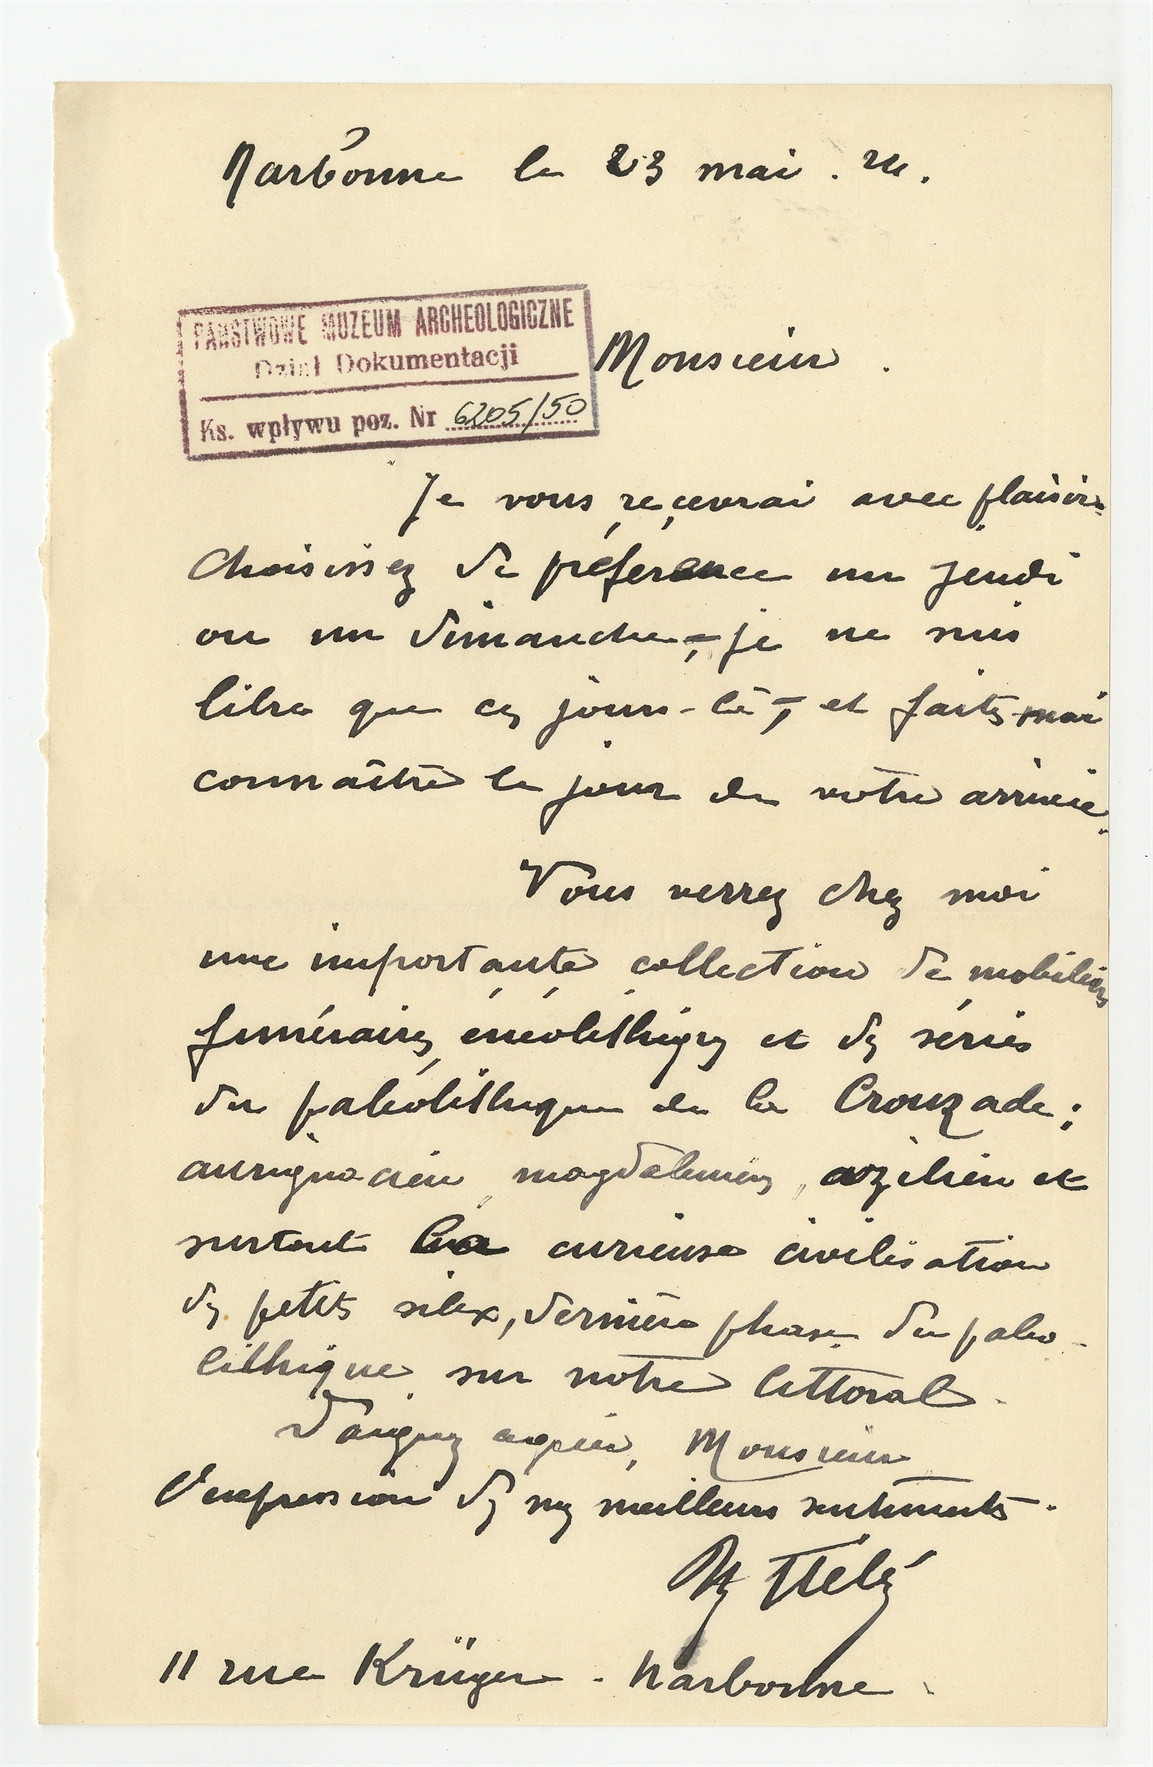 Narbonne le 23 mai . 24.
PAŃSTWOWE MUZEUM ARCHEOLOGICZNE
Dział Dokumentacji
Ks. wpływu poz. Nr 6205/50
Monsieur .
Je vous reçevrai avec plaisir.
Choisissez de préférence un jeudi
ou un dimanche, – je ne suis
libre que ces jours-là –, et faites-moi
connaître le jour de votre arrivée.
Vous verrez chez moi
une importante collection de mobiliers
funéraires énéolithiques et des séries
du paléolithique de la Crouzade :
aurignacien, magdalénien, azilien et
surtout la curieuse civilisation
des petits silex, dernière phase du paléo-
lithique sur notre littoral.
Daignez agréer, Monsieur
l'expression de mes meilleurs sentiments.
Héléna
11 rue Krüger - Narbonne.